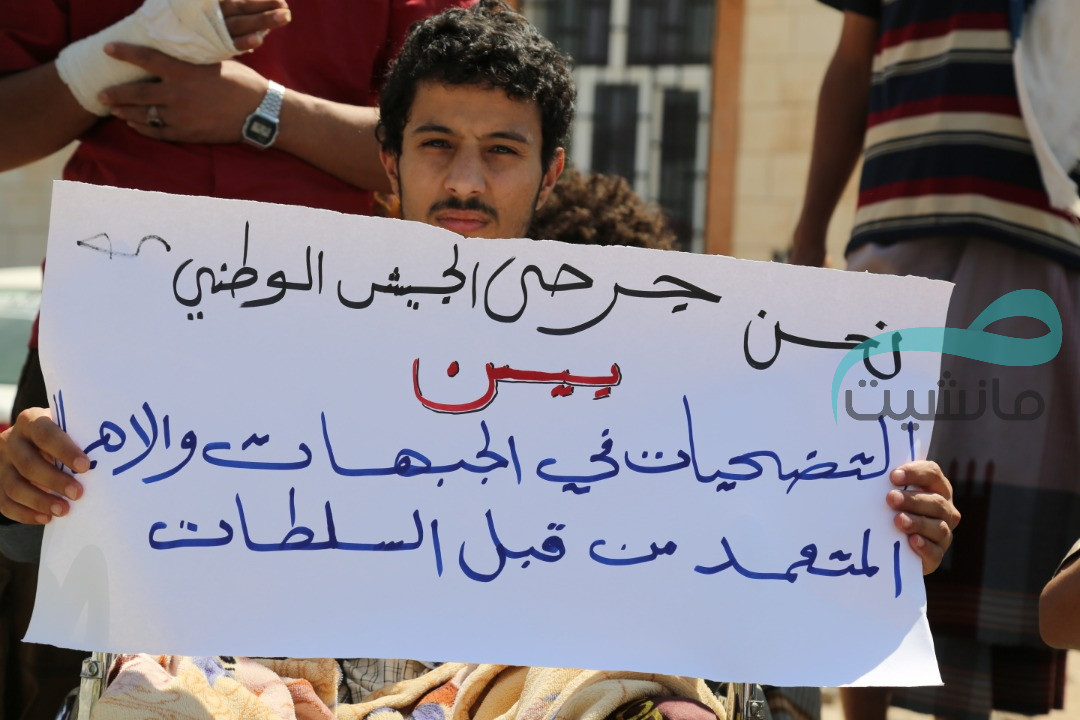 نحن جرحى الجيش الوطني
بين
التضحيات في الجبهات والاهمال
المتعمد من قبل السلطات
مانشيت